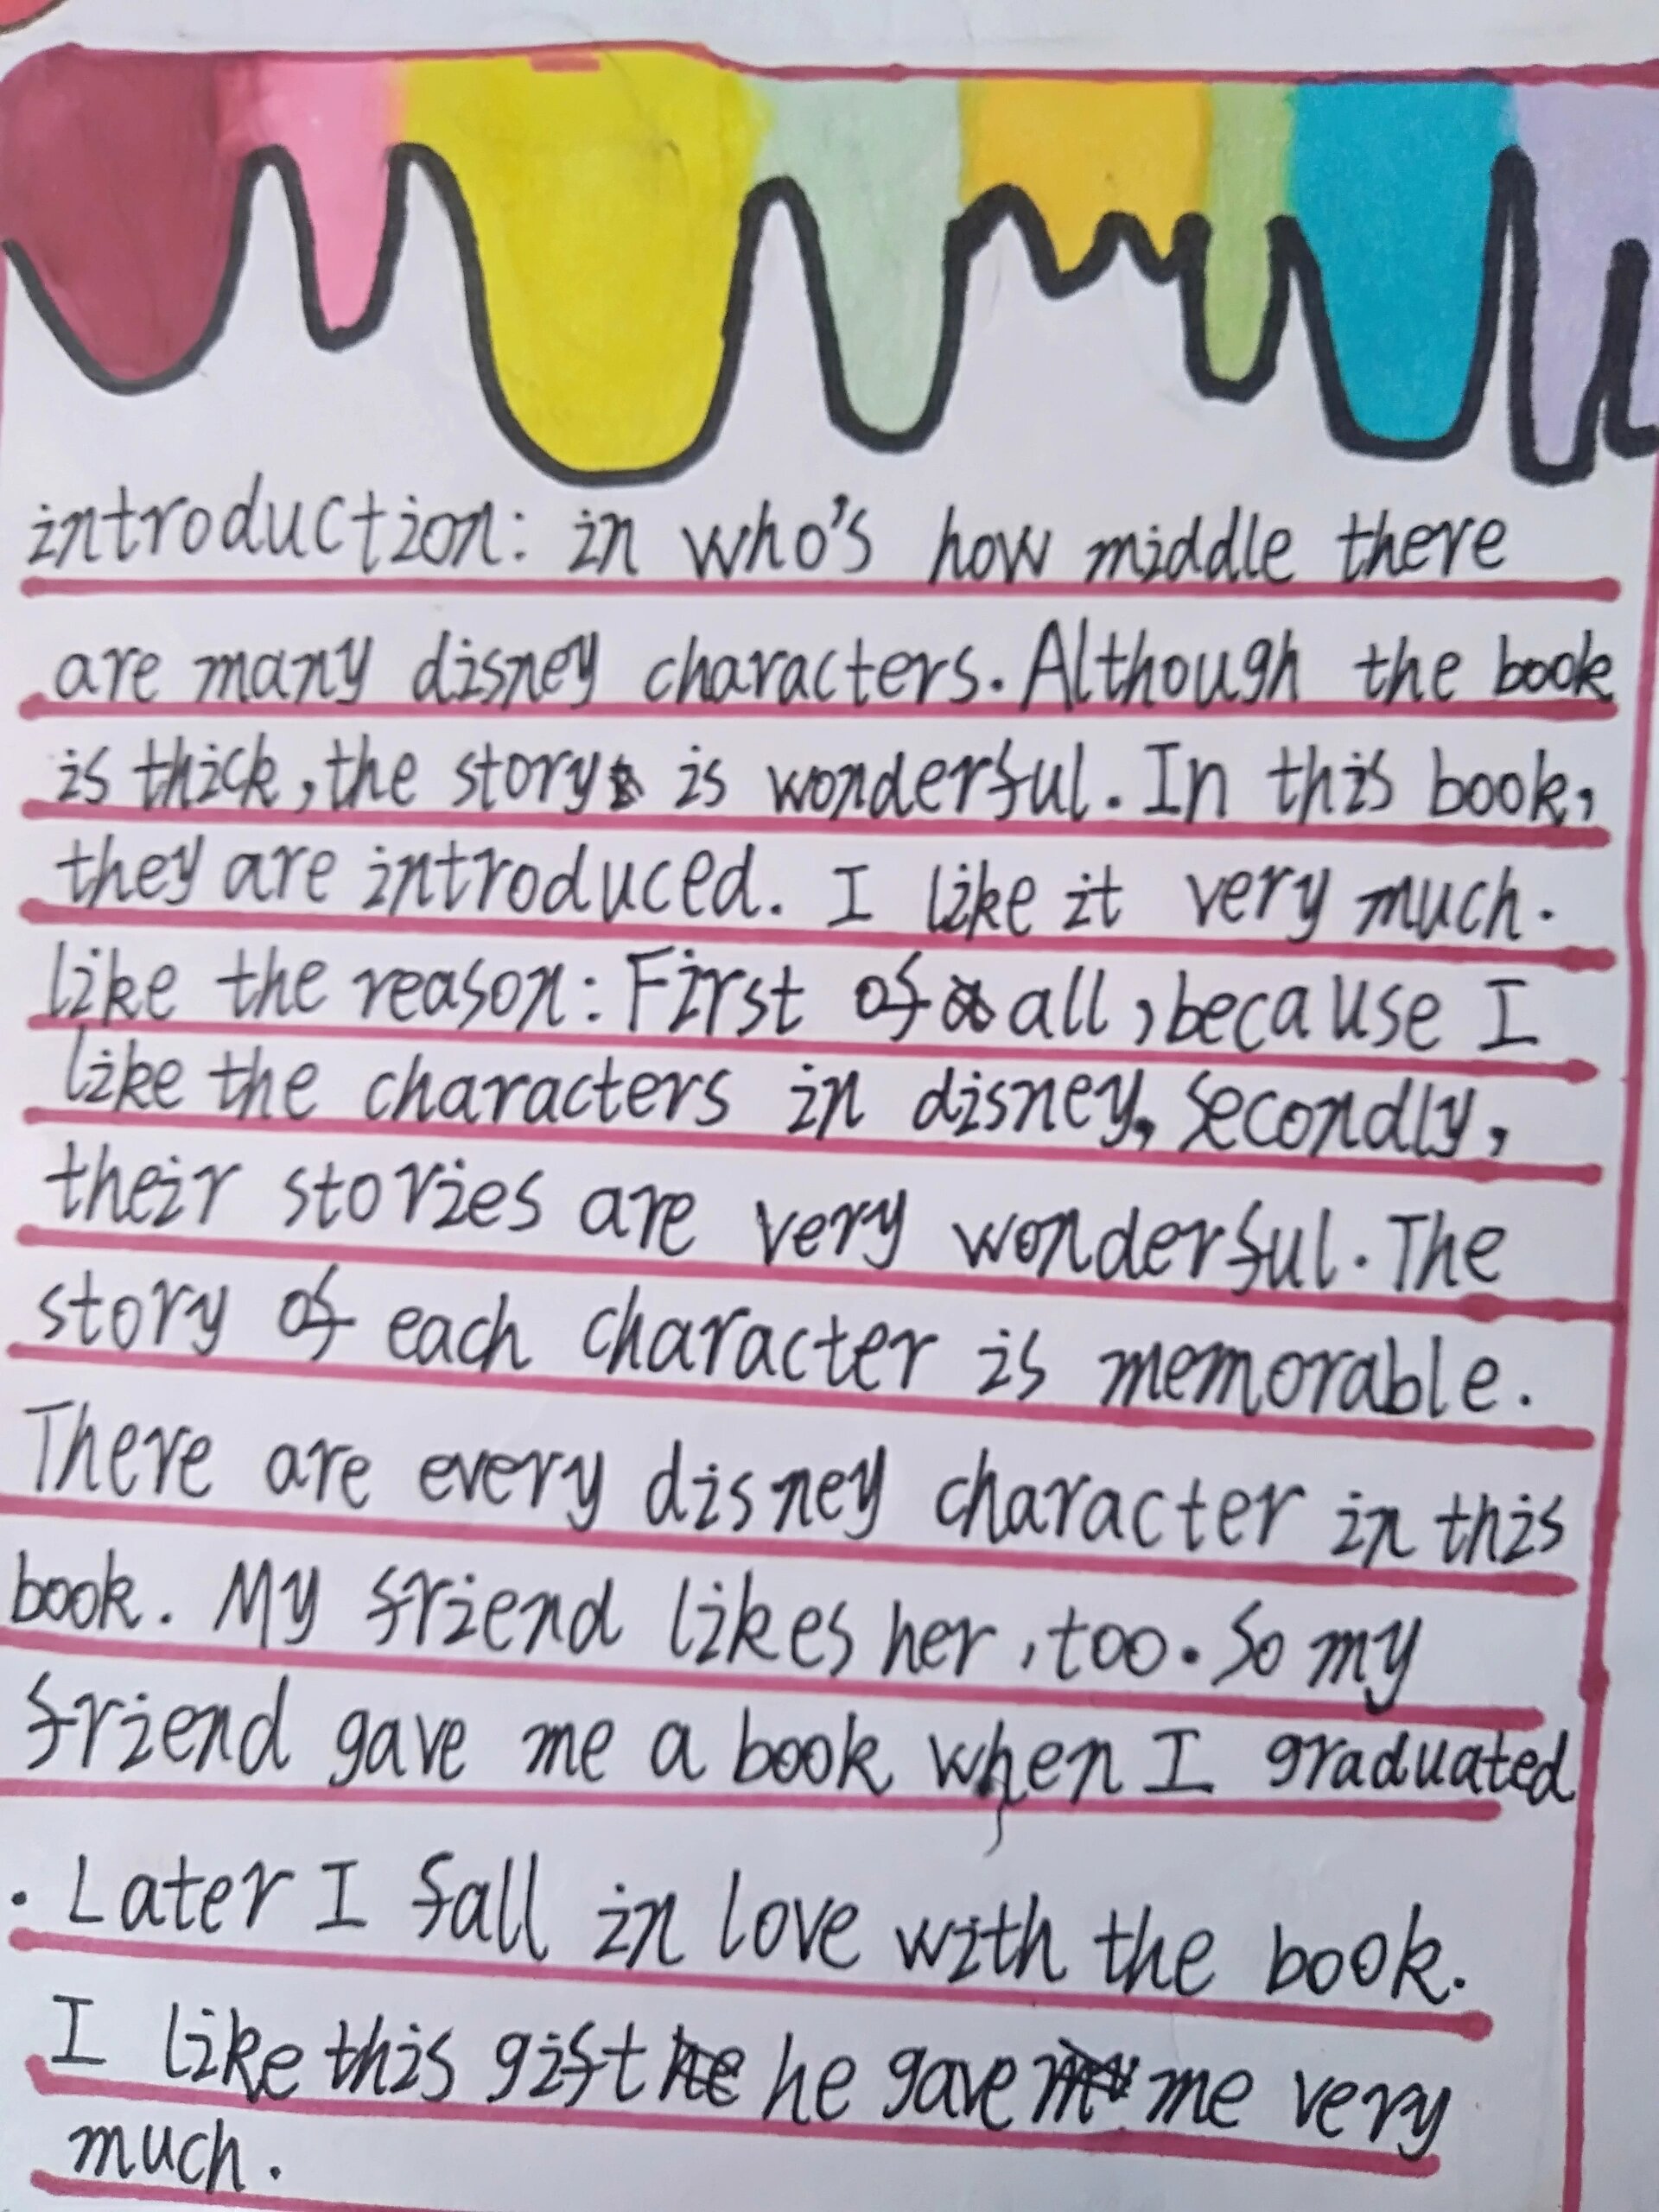 introduction: in who's how middle there
are many disney characters. Although the book
is thick, the story is wonderful. In this book,
they are introduced. I like it very much.
like the reason: First of all, because I
like the characters in disney, Secondly,
their stories are very wonderful. The
story of each character is memorable.
There are every disney character in this
book. My friend likes her, too. So my
friend gave me a book when I graduated
. Later I fall in love with the book.
I like this gift he gave me very
much.